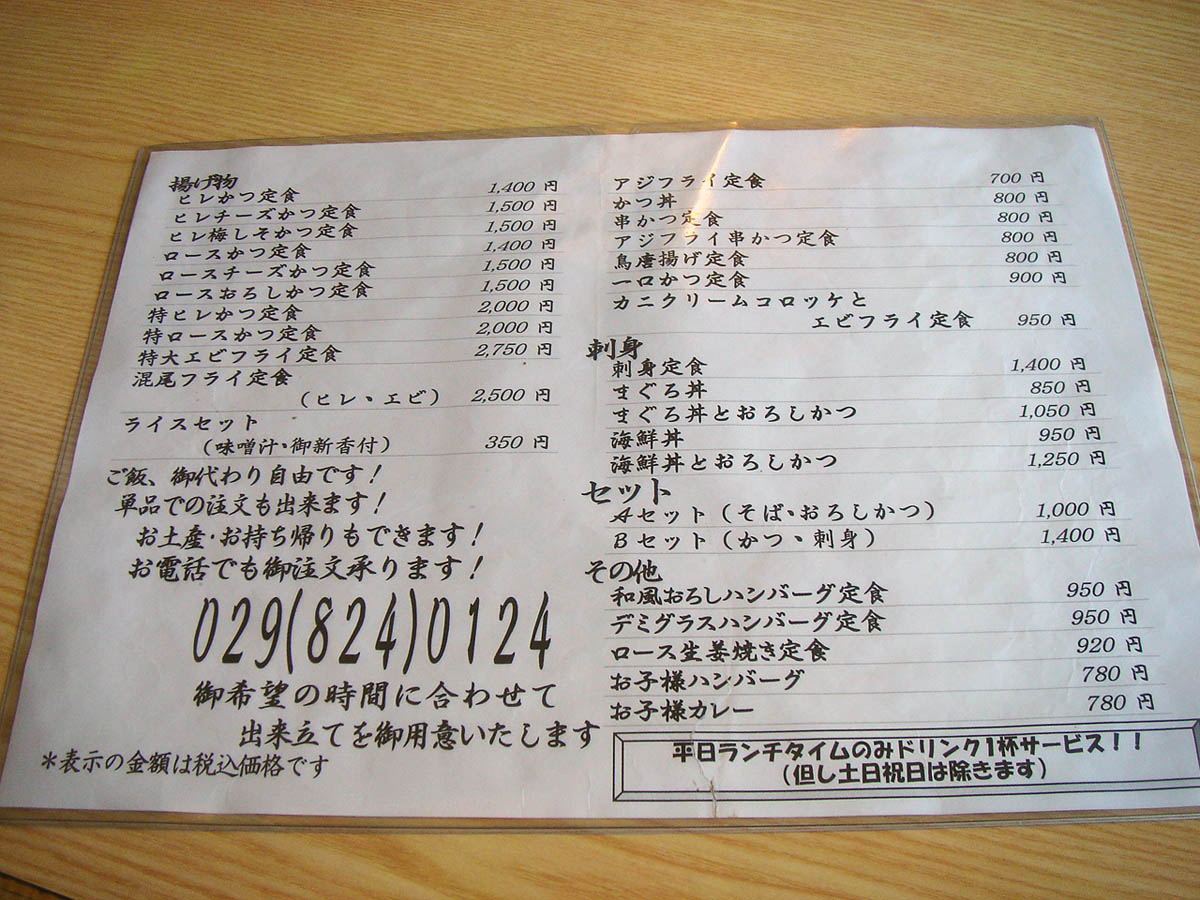 揚げ物
ヒレかつ定食 1,400 円
ヒレチーズかつ定食 1,500 円
ヒレ梅しそかつ定食 1,500 円
ロースかつ定食 1,400 円
ロースチーズかつ定食 1,500 円
ロースおろしかつ定食 1,500 円
特ヒレかつ定食 2,000 円
特ロースかつ定食 2,000 円
特大エビフライ定食 2,750 円
混尾フライ定食
(ヒレ、エビ) 2,500 円
ライスセット
(味噌汁・御新香付) 350 円
ご飯、御代わり自由です!
単品での注文も出来ます!
お土産・お持ち帰りもできます!
お電話でも御注文承ります!
029(824)0124
御希望の時間に合わせて
出来立てを御用意いたします
*表示の金額は税込価格です
アジフライ定食 700 円
かつ丼 800 円
串かつ定食 800 円
アジフライ串かつ定食 800 円
鳥唐揚げ定食 800 円
一口かつ定食 900 円
カニクリームコロッケと
エビフライ定食 950 円
刺身
刺身定食 1,400 円
まぐろ丼 850 円
まぐろ丼とおろしかつ 1,050 円
海鮮丼 950 円
海鮮丼とおろしかつ 1,250 円
セット
Aセット(そば・おろしかつ) 1,000 円
Bセット(かつ、刺身) 1,400 円
その他
和風おろしハンバーグ定食 950 円
デミグラスハンバーグ定食 950 円
ロース生姜焼き定食 920 円
お子様ハンバーグ 780 円
お子様カレー 780 円
平日ランチタイムのみドリンク1杯サービス!!
(但し土日祝日は除きます)